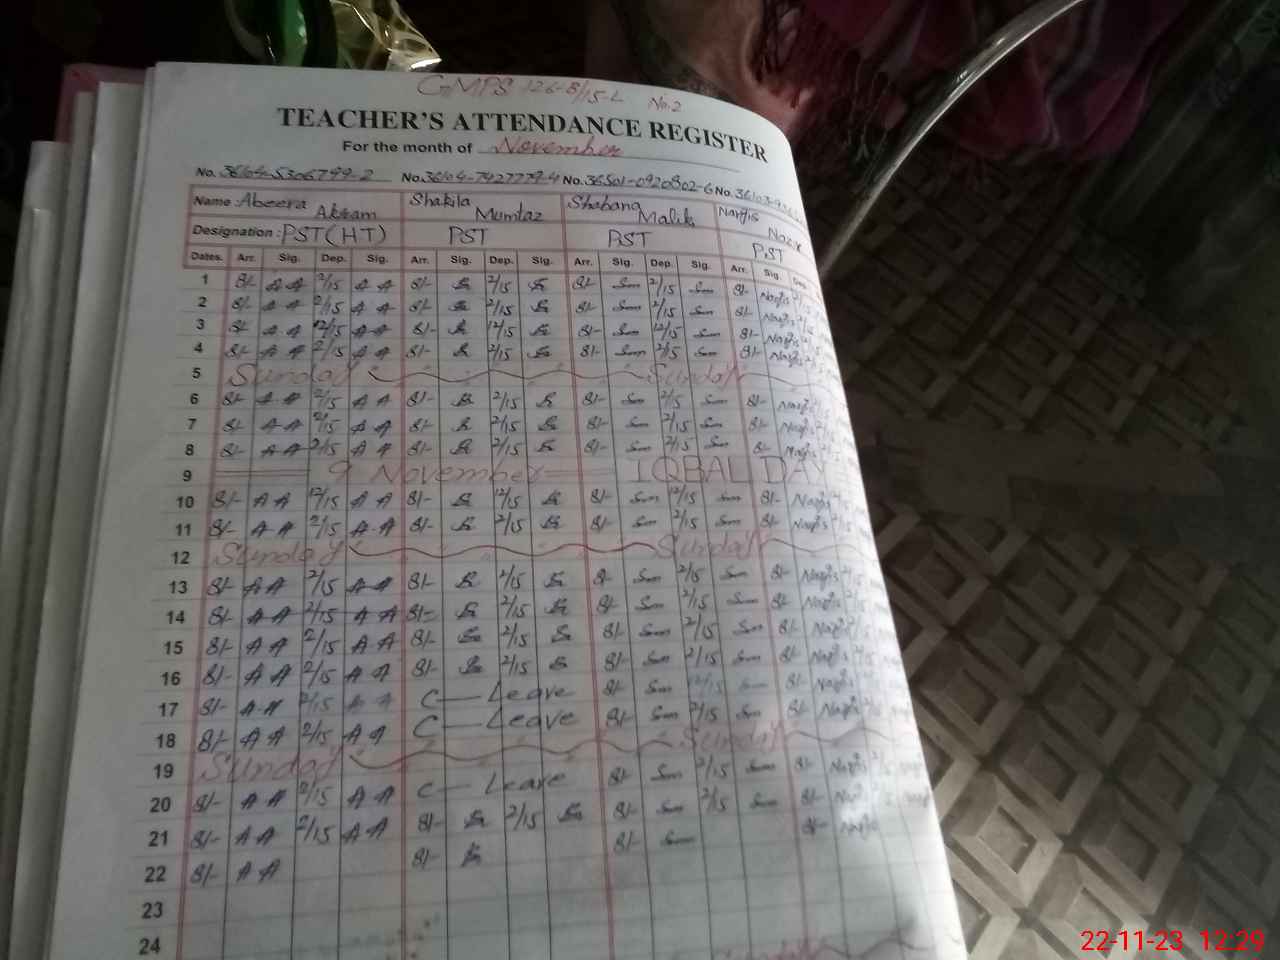 GMPS 126-B/15-L No.2
TEACHER'S ATTENDANCE REGISTER
For the month of November
No. 36104-5306799-2 No. 36104-7427779-4 No. 36501-0920802-6 No. 36103-
Name : Abeera Akram Shakila Mumtaz Shabana Malik Nargis
Designation : PST (HT) PST PST PST
Dates. Arr. Sig. Dep. Sig. Arr. Sig. Dep. Sig. Arr. Sig. Dep. Sig. Arr. Sig. Dep.
1 8/- AA 2/15 AA 8/- 2/15 8/- 2/15 8/- Nargis 2/15
2 8/- AA 2/15 AA 8/- 2/15 8/- 2/15 8/- Nargis 2/15
3 8/- AA 12/15 AA 8/- 12/15 8/- 12/15 8/- Nargis
4 8/- AA 2/15 AA 8/- 2/15 8/- 2/15 8/- Nargis 2/15
5 Sunday Sunday
6 8/- AA 2/15 AA 8/- 2/15 8/- 2/15 8/- Nargis
7 8/- AA 2/15 AA 8/- 2/15 8/- 2/15 8/- Nargis
8 8/- AA 2/15 AA 8/- 2/15 8/- 2/15 8/- Nargis
9 9 November IQBAL DAY
10 8/- AA 12/15 AA 8/- 12/15 8/- 12/15 8/- Nargis
11 8/- AA 2/15 AA 8/- 2/15 8/- 2/15 8/- Nargis
12 Sunday Sunday
13 8/- AA 2/15 AA 8/- 2/15 8/- 2/15 8/- Nargis
14 8/- AA 2/15 AA 8/- 2/15 8/- 2/15 8/- Nargis
15 8/- AA 2/15 AA 8/- 2/15 8/- 2/15 8/- Nargis
16 8/- AA 2/15 AA 8/- 2/15 8/- 2/15 8/- Nargis
17 8/- AA 2/15 AA C — Leave 8/- 12/15 8/- Nargis
18 8/- AA 2/15 AA C — Leave 8/- 2/15 8/- Nargis
19 Sunday Sunday
20 8/- AA 2/15 AA C — Leave 8/- 2/15 8/- Nargis
21 8/- AA 2/15 AA 8/- 2/15 8/- 2/15 8/- Nargis
22 8/- AA 8/- 8/- 8/- Nargis
23
24
22-11-23 12:29